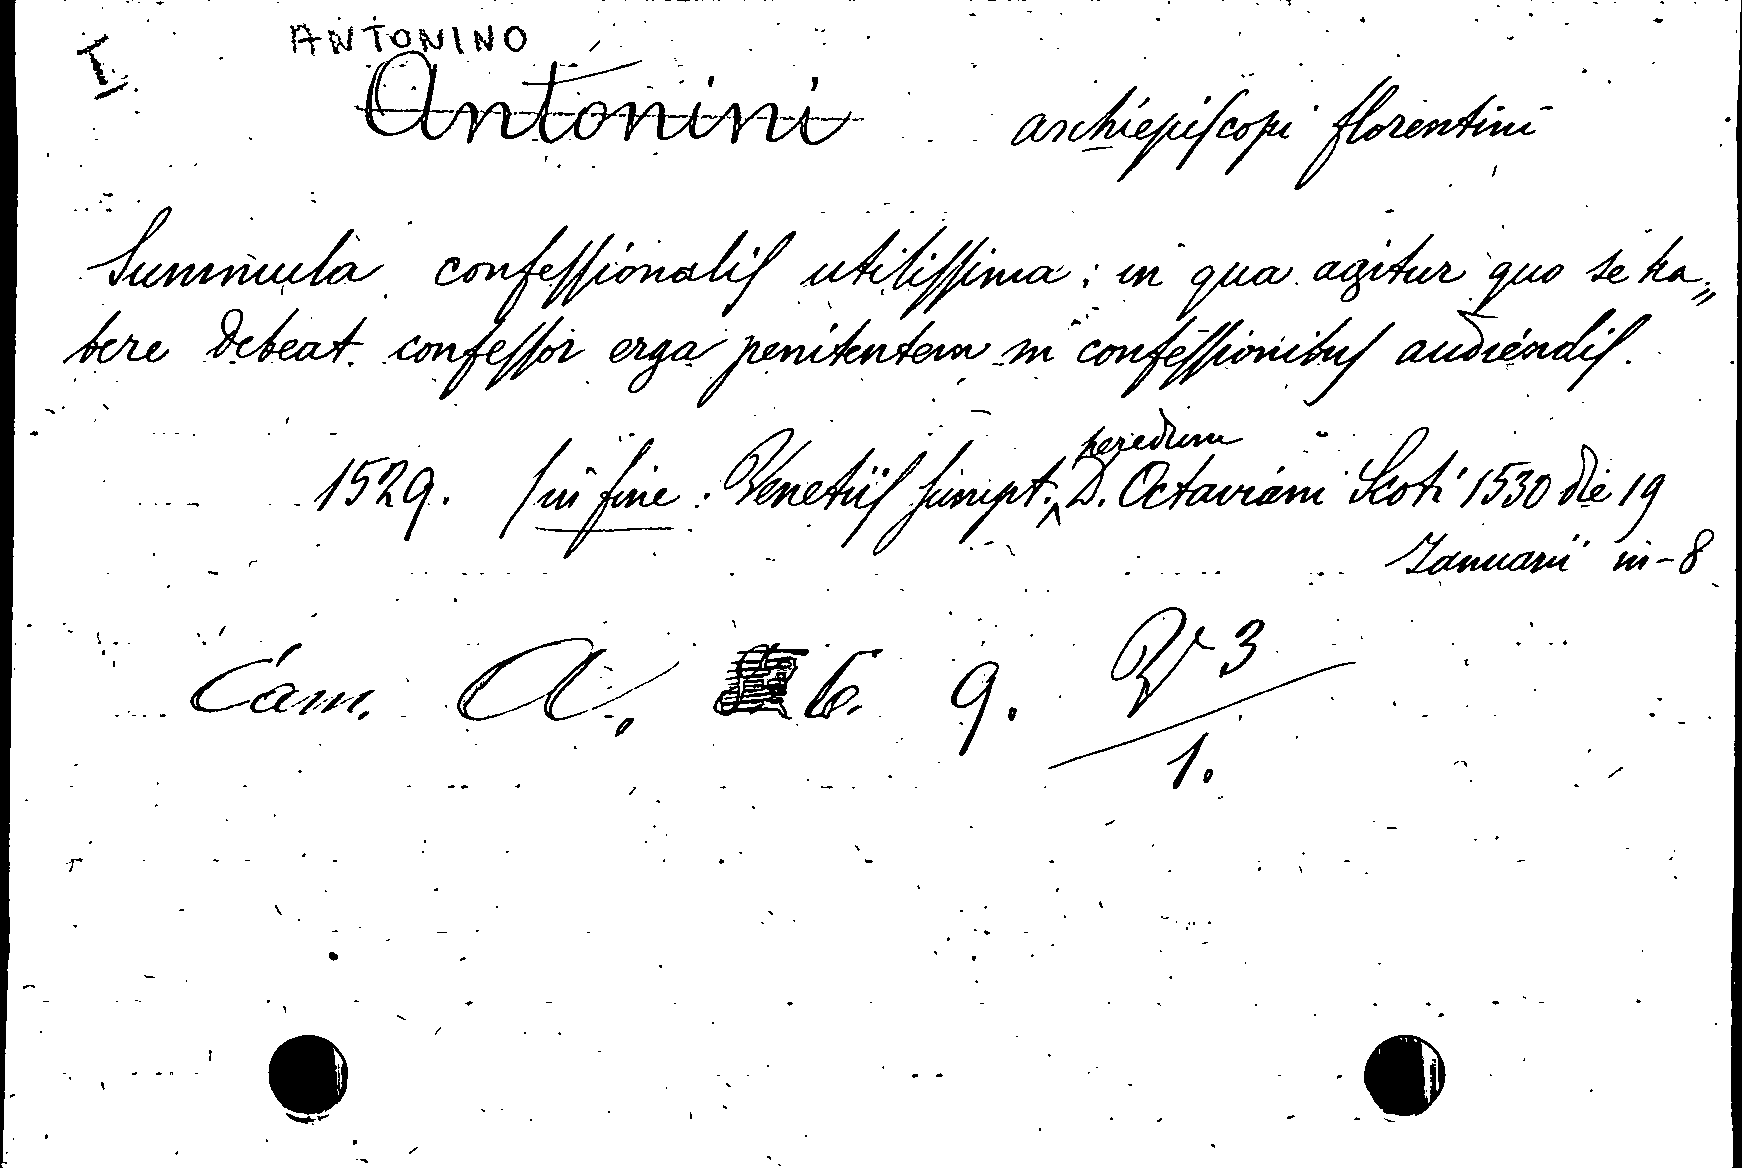 I
ANTONINO
Antonini archiepiscopi florentini
Summula confessionalis utilissima: in qua agitur quo se ha„
bere debeat confessor erga penitentem in confessionibus audiendis.
heredum
1529. / in fine: Venetiis sumpt. D. Octaviani Scoti 1530 die 19
Januarii in-8
Cam. A. 6. 9. V 3
1.